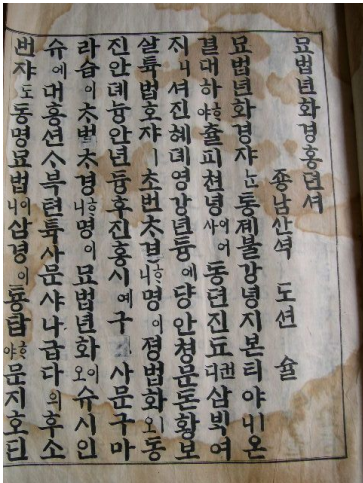 묘법년화경홍뎐셔
죵남산셕 도션 슐
묘법년화경쟈는 통졔불강녕지본티야니온
결대하야 츌피쳔녕사이어 동뎐진됴대컨 삼빅여
지니 셔진혜뎨영강년듕에 당안쳥문돈황보
살튝법호쟈ㅣ 초번ᄎ경ᄒ니 명이 졍법화ㅣ오 동
진안뎨늉안년듕 후진홍시예 구 사문구마
라습이 ᄎ번ᄎ경ᄒ니 명이 묘법년화ㅣ오 이 슈시인
슈에 대흥션ᄉ 부텬튝사문 샤나급다의 후소
번쟈도 동명묘법이니 삼경이 듕답ᄒ야 문지호틴